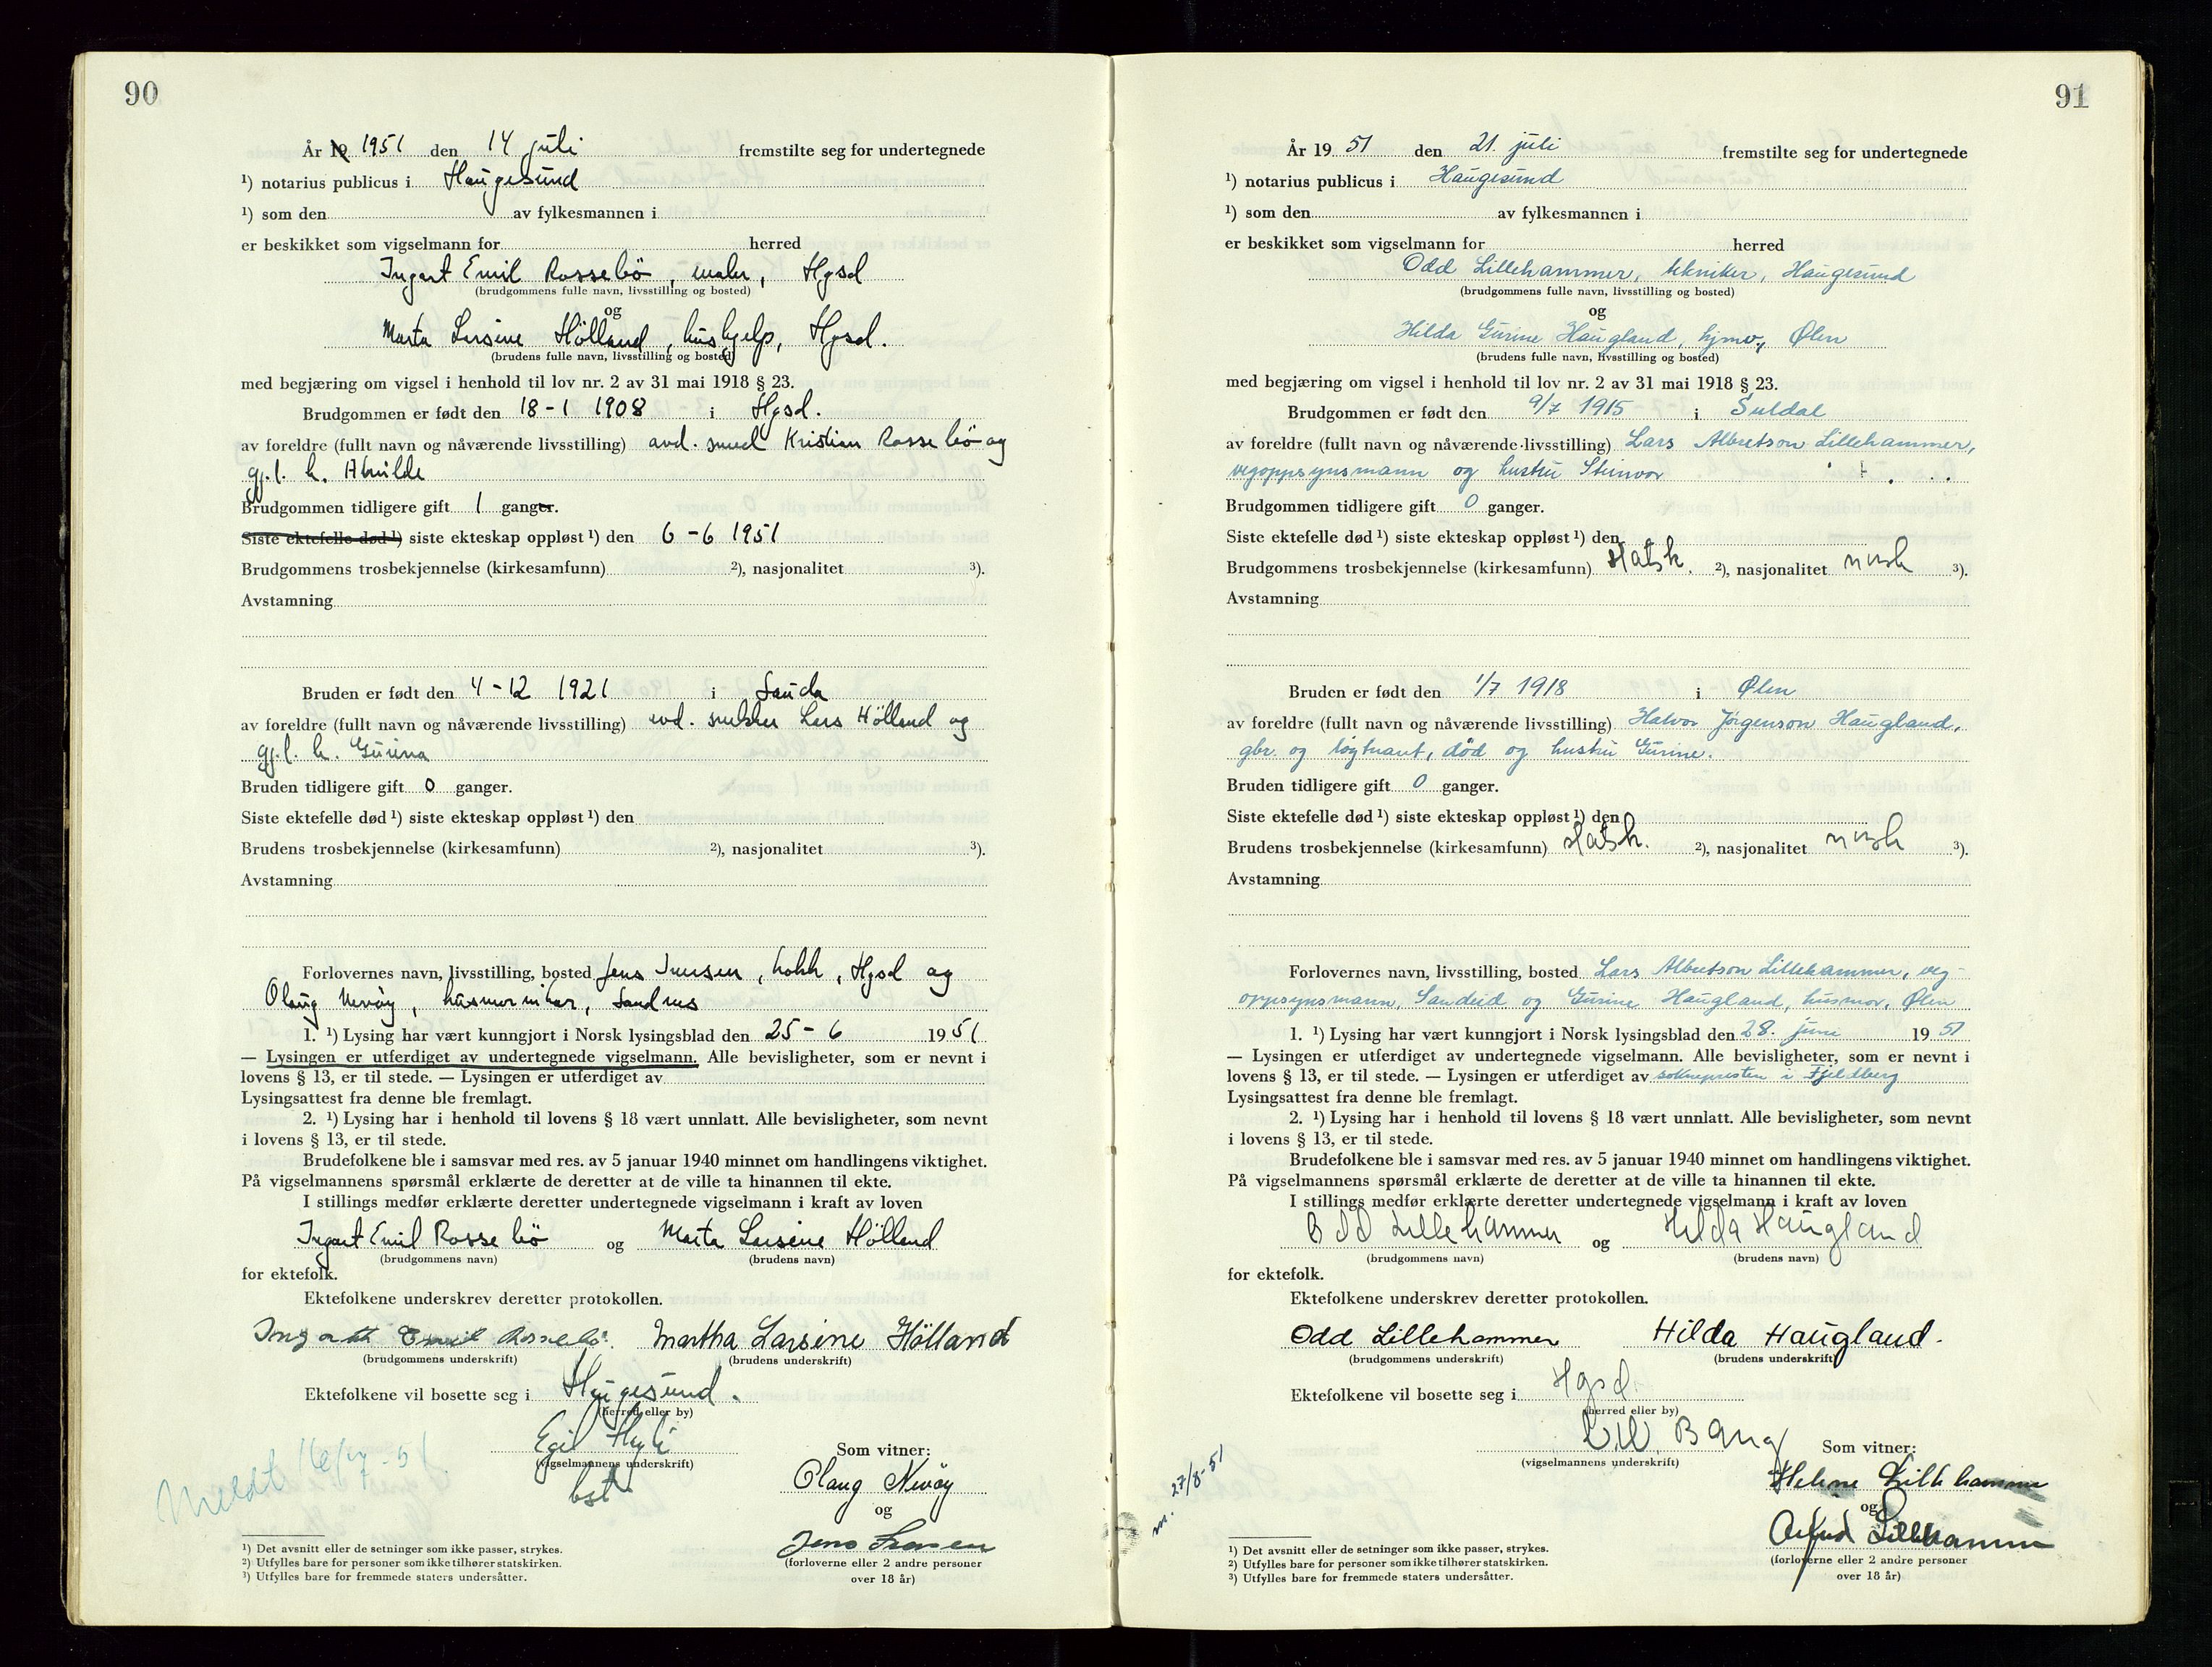 90
År 19 1951 den 14 juli fremstilte seg for undertegnede
¹) notarius publicus i Haugesund
¹) som den av fylkesmannen i
er beskikket som vigselmann for herred
Ingart Emil Rossebö, maler, Hgsd
(brudgommens fulle navn, livsstilling og bosted)
og
Marta Larsine Hölland, hushjelp, Hgsd.
(brudens fulle navn, livsstilling og bosted)
med begjæring om vigsel i henhold til lov nr. 2 av 31 mai 1918 § 23.
Brudgommen er født den 18-1 1908 i Hgsd.
av foreldre (fullt navn og nåværende livsstilling) avd. smed Kristian Rossebö og
gj.l. h.
Brudgommen tidligere gift 1 ganger.
Siste ektefelle død ¹) siste ekteskap oppløst ¹) den 6-6 1951
Brudgommens trosbekjennelse (kirkesamfunn) ²), nasjonalitet ³).
Avstamning
Bruden er født den 4-12 1921 i Sauda
av foreldre (fullt navn og nåværende livsstilling) avd. snekker Lars Hölland og
gj.l. h. Gurina
Bruden tidligere gift 0 ganger.
Siste ektefelle død ¹) siste ekteskap oppløst ¹) den
Brudens trosbekjennelse (kirkesamfunn) ²), nasjonalitet ³).
Avstamning
Forlovernes navn, livsstilling, bosted Jens Iversen, kokk, Hgsd og
Olaug Nevöy, husmorvikar, Sandnes
1. ¹) Lysing har vært kunngjort i Norsk lysingsblad den 25-6 1951
— Lysingen er utferdiget av undertegnede vigselmann. Alle bevisligheter, som er nevnt i
lovens § 13, er til stede. — Lysingen er utferdiget av
Lysingsattest fra denne ble fremlagt.
2. ¹) Lysing har i henhold til lovens § 18 vært unnlatt. Alle bevisligheter, som nevnt
i lovens § 13, er til stede.
Brudefolkene ble i samsvar med res. av 5 januar 1940 minnet om handlingens viktighet.
På vigselmannens spørsmål erklærte de deretter at de ville ta hinannen til ekte.
I stillings medfør erklærte deretter undertegnede vigselmann i kraft av loven
Ingart Emil Rossebö og Marta Larsine Hölland
(brudgommens navn) (brudens navn)
for ektefolk.
Ektefolkene underskrev deretter protokollen.
Ingarth Emil Rossebö. Martha Larsine Hölland
(brudgommens underskrift) (brudens underskrift)
Ektefolkene vil bosette seg i Haugesund.
(herred eller by)
Egil
(vigselmannens underskrift)
bst
Som vitner:
Olaug Nevöy
og
Jens Iversen
(forloverne eller 2 andre personer
over 18 år)
Meldt 16/7-51
¹) Det avsnitt eller de setninger som ikke passer, strykes.
²) Utfylles bare for personer som ikke tilhører statskirken.
³) Utfylles bare for fremmede staters undersåtter.
91
År 19 51 den 21. juli fremstilte seg for undertegnede
¹) notarius publicus i Haugesund
¹) som den av fylkesmannen i
er beskikket som vigselmann for herred
Odd Lillehammer, tekniker, Haugesund
(brudgommens fulle navn, livsstilling og bosted)
og
Hilda Gurine Haugland, hjmv., Ølen
(brudens fulle navn, livsstilling og bosted)
med begjæring om vigsel i henhold til lov nr. 2 av 31 mai 1918 § 23.
Brudgommen er født den 9/7 1915 i Suldal
av foreldre (fullt navn og nåværende livsstilling) Lars Albretson Lillehammer,
vegoppsynsmann og hustru Steinvor
Brudgommen tidligere gift 0 ganger.
Siste ektefelle død ¹) siste ekteskap oppløst ¹) den
Brudgommens trosbekjennelse (kirkesamfunn) statsk. ²), nasjonalitet norsk ³).
Avstamning
Bruden er født den 1/7 1918 i Ølen
av foreldre (fullt navn og nåværende livsstilling) Halvor Jørgenson Haugland,
gbr. og løytnant, død og hustru Gurine.
Bruden tidligere gift 0 ganger.
Siste ektefelle død ¹) siste ekteskap oppløst ¹) den
Brudens trosbekjennelse (kirkesamfunn) statsk. ²), nasjonalitet norsk ³).
Avstamning
Forlovernes navn, livsstilling, bosted Lars Albretson Lillehammer, veg-
oppsynsmann, Sandeid og Gurine Haugland, husmor, Ølen
1. ¹) Lysing har vært kunngjort i Norsk lysingsblad den 28. juni 1951
— Lysingen er utferdiget av undertegnede vigselmann. Alle bevisligheter, som er nevnt i
lovens § 13, er til stede. — Lysingen er utferdiget av soknepresten i Fjeldberg
Lysingsattest fra denne ble fremlagt.
2. ¹) Lysing har i henhold til lovens § 18 vært unnlatt. Alle bevisligheter, som nevnt
i lovens § 13, er til stede.
Brudefolkene ble i samsvar med res. av 5 januar 1940 minnet om handlingens viktighet.
På vigselmannens spørsmål erklærte de deretter at de ville ta hinannen til ekte.
I stillings medfør erklærte deretter undertegnede vigselmann i kraft av loven
Odd Lillehammer og Hilda Haugland
(brudgommens navn) (brudens navn)
for ektefolk.
Ektefolkene underskrev deretter protokollen.
Odd Lillehammer Hilda Haugland.
(brudgommens underskrift) (brudens underskrift)
Ektefolkene vil bosette seg i Hgsd.
(herred eller by)
Bang
(vigselmannens underskrift)
Som vitner:
Helene Lillehammer
og
Lillehammer
(forloverne eller 2 andre personer
over 18 år)
m. 27/8-51
¹) Det avsnitt eller de setninger som ikke passer, strykes.
²) Utfylles bare for personer som ikke tilhører statskirken.
³) Utfylles bare for fremmede staters undersåtter.